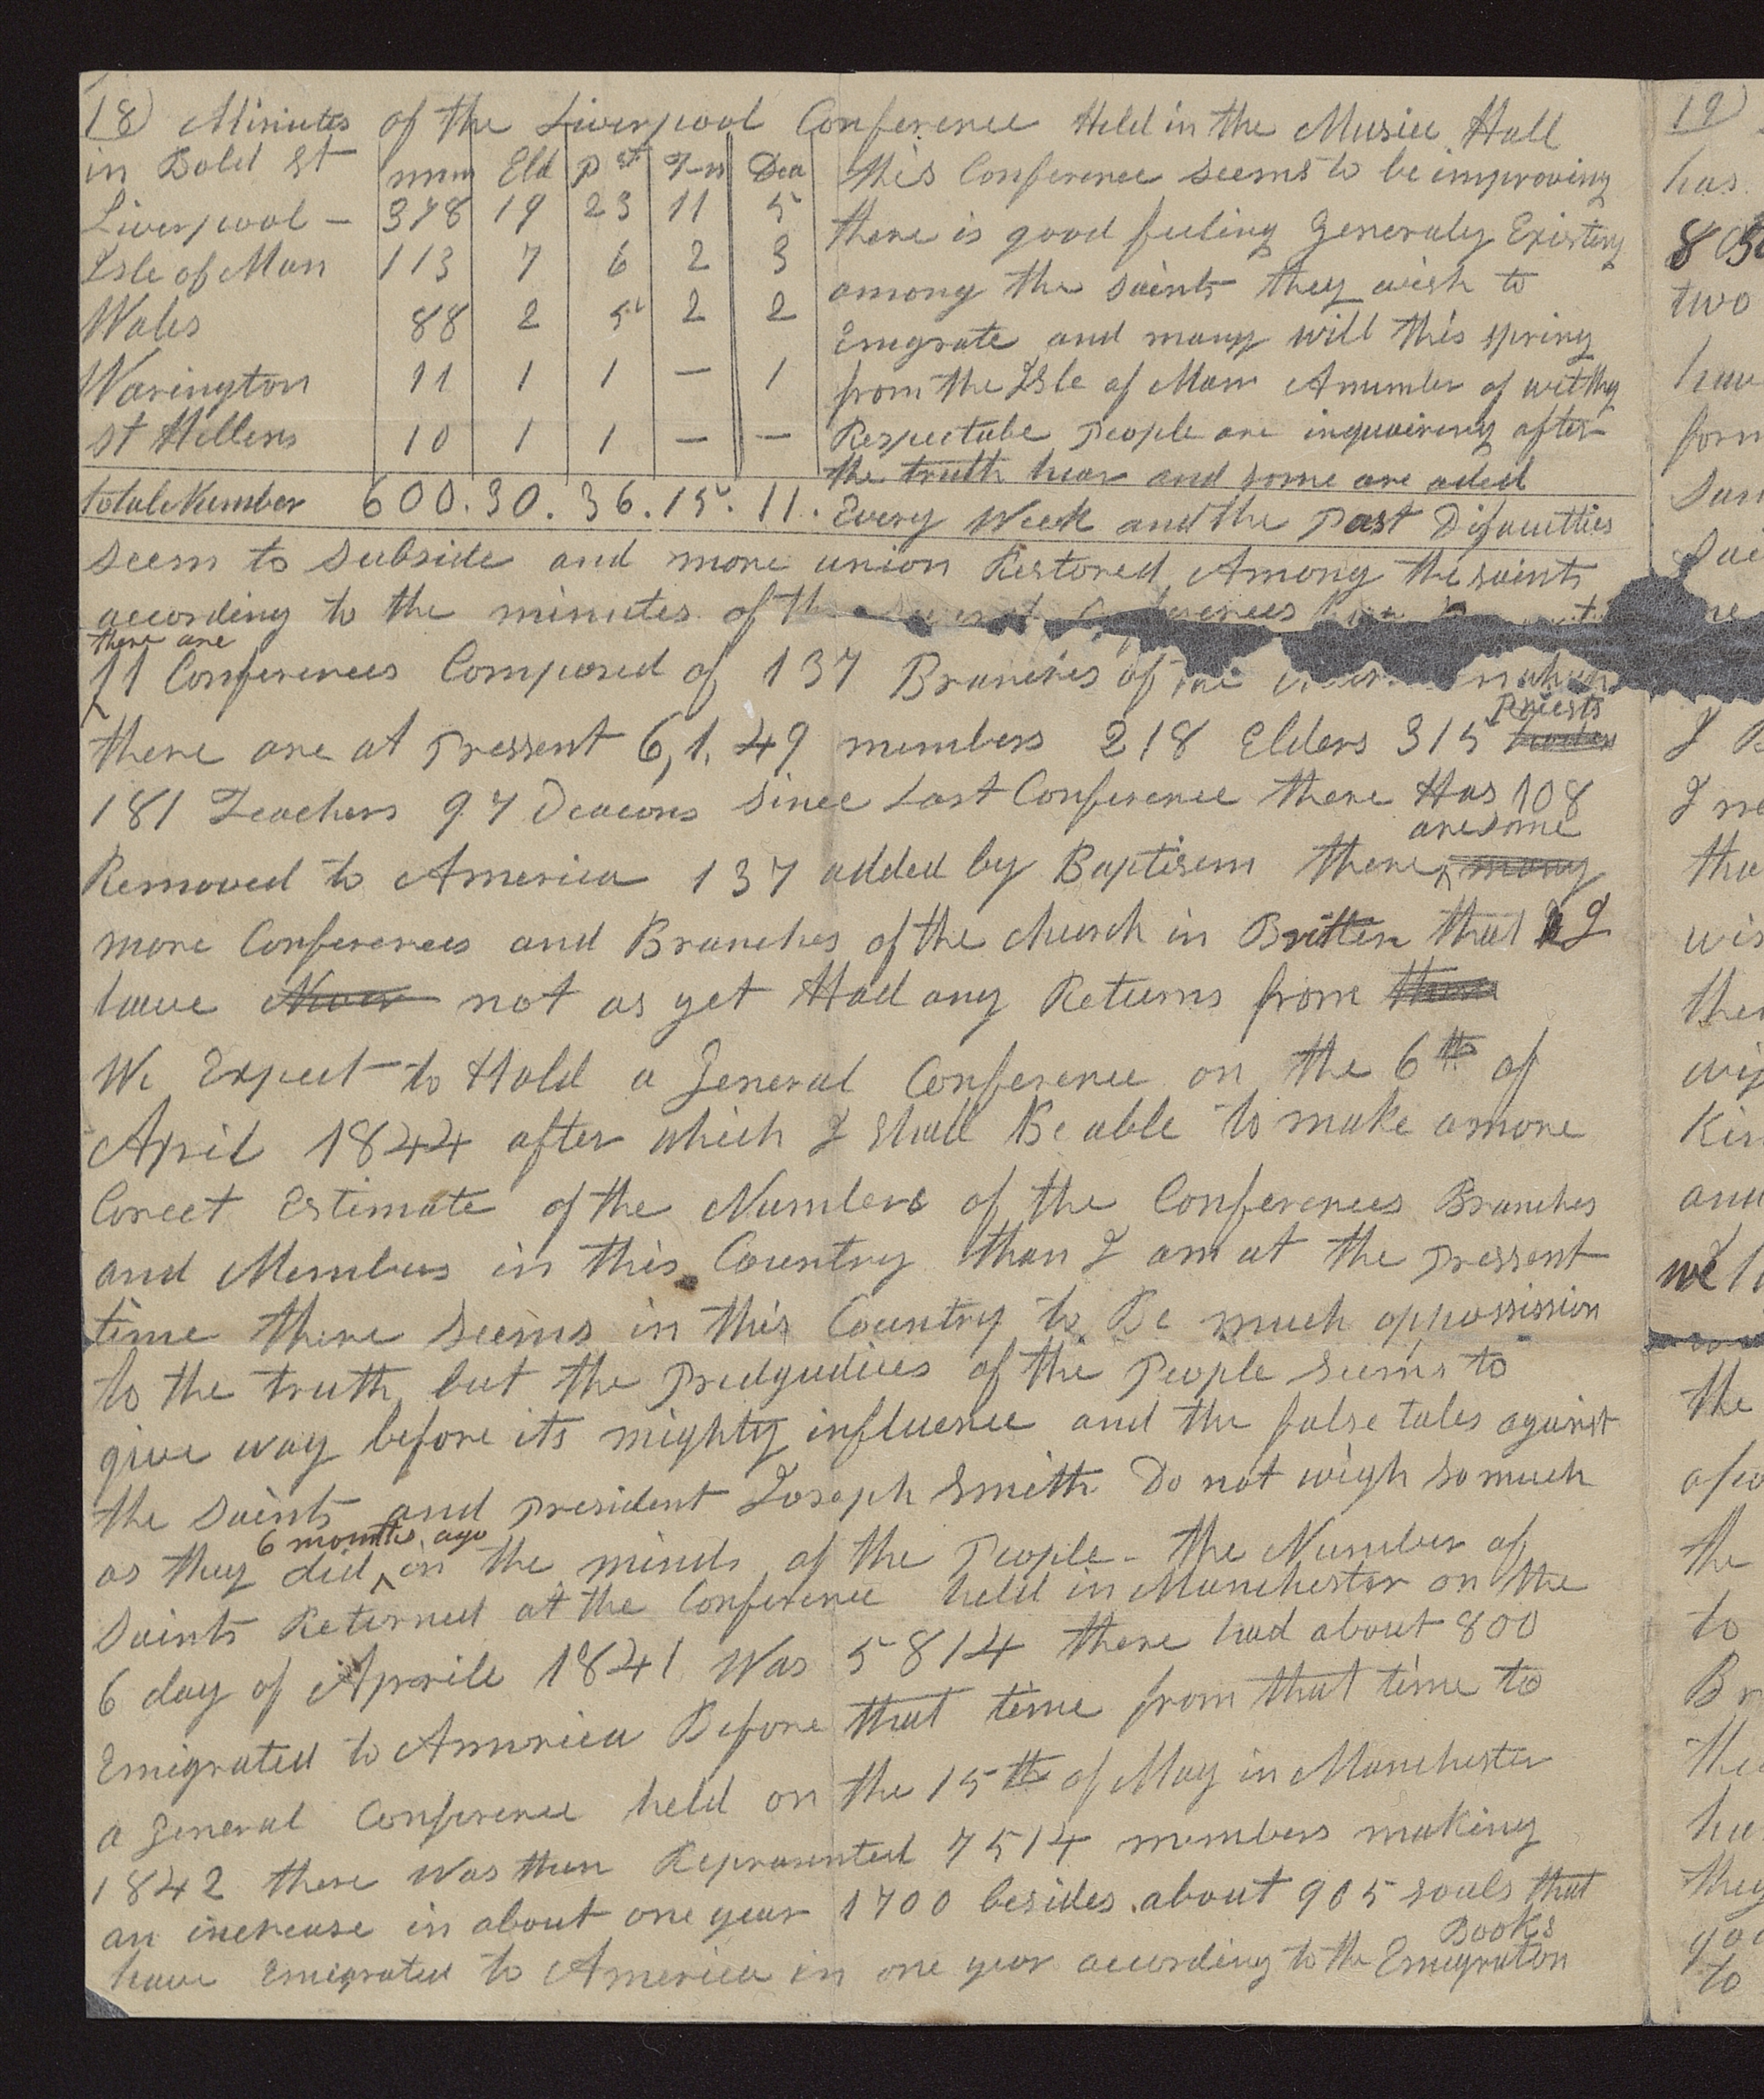 18) Minutes of the Liverpool Conference Held in the Music Hall
in Bold St | mem | Eld | P st | T-rs | Dea
Liverpool – | 378 | 19 | 23 | 11 | 5
Isle of Man | 113 | 7 | 6 | 2 | 3
Wales | 88 | 2 | 5 | 2 | 2
Warington | 11 | 1 | 1 | — | 1
St Hellens | 10 | 1 | 1 | — | —
total Number 600. 30. 36. 15. 11.
this Conference seems to be improving
there is good feeling Generaly Existing
among the saints they wish to
Emegrate and many will this spring
from the Isle of Man A number of welthy
Respectabe People are inquoireing after
the truth hear and some are aded
Every Week and the Past Dificulties
seem to subside and more union Restored Among the saints
according to the minutes of
there are
11 Conferences Composed of 137 Branches of
Priests
there are at Pressent 6,1,49 members 218 Elders 315
181 Teachers 97 Deacons since Last Conference there Has 108
are some
Removed to America 137 added by Baptisem there many
more Conferences and Branches of the church in Britten that I
have Never not as yet Had any Returns from them
We Expect to Hold a General Conference on the 6th of
April 1844 after which I shall Be able to make a more
Corect Estimate of the Numbers of the Conferences Branches
and Members in this Country than I am at the Pressent
time there seems in this Country to Be much oppossission
to the truth but the Predgudices of the People seems to
give way before its mighty influence and the false tales against
the Saints and President Joseph Smith Do not weigh so much
6 months ago
as they did on the minds of the People - the Number of
Saints Returned at the Conference held in Manchester on the
6 day of Aprile 1841 Was 5814 there had about 800
Emigrated to America Before that time from that time to
a General Conference held on the 15th of May in Manchester
1842 there Was then Represented 7514 members making
an increase in about one year 1700 besides about 905 souls that
Books
have Emegrated to America in one year according to the Emegration
19)
has
two
the
the
to
to